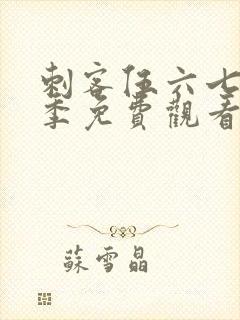 刺客伍六七
季免費觀看
蘇雪晶